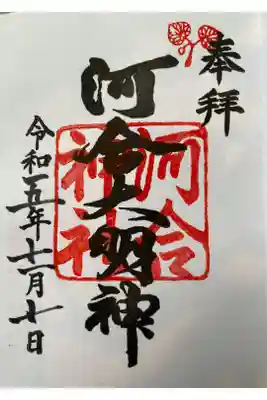 奉拝
河會大明神
河合
神社
令和五年十一月七日